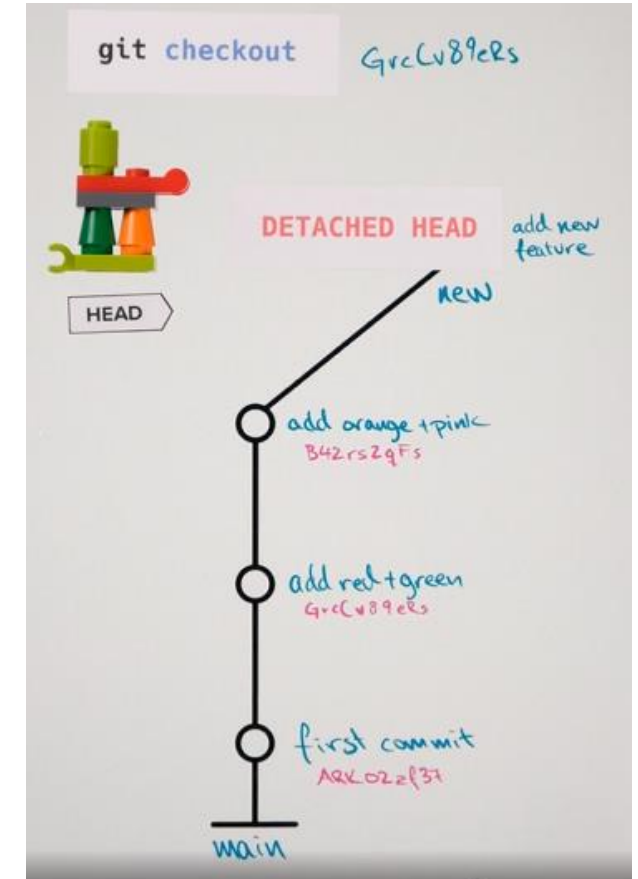 git checkout GrcCv89eRs
DETACHED HEAD
add new
feature
new
HEAD
add orange + pink
B42rs2gFs
add red + green
GrcCv89eRs
first commit
ARK02zf37
main